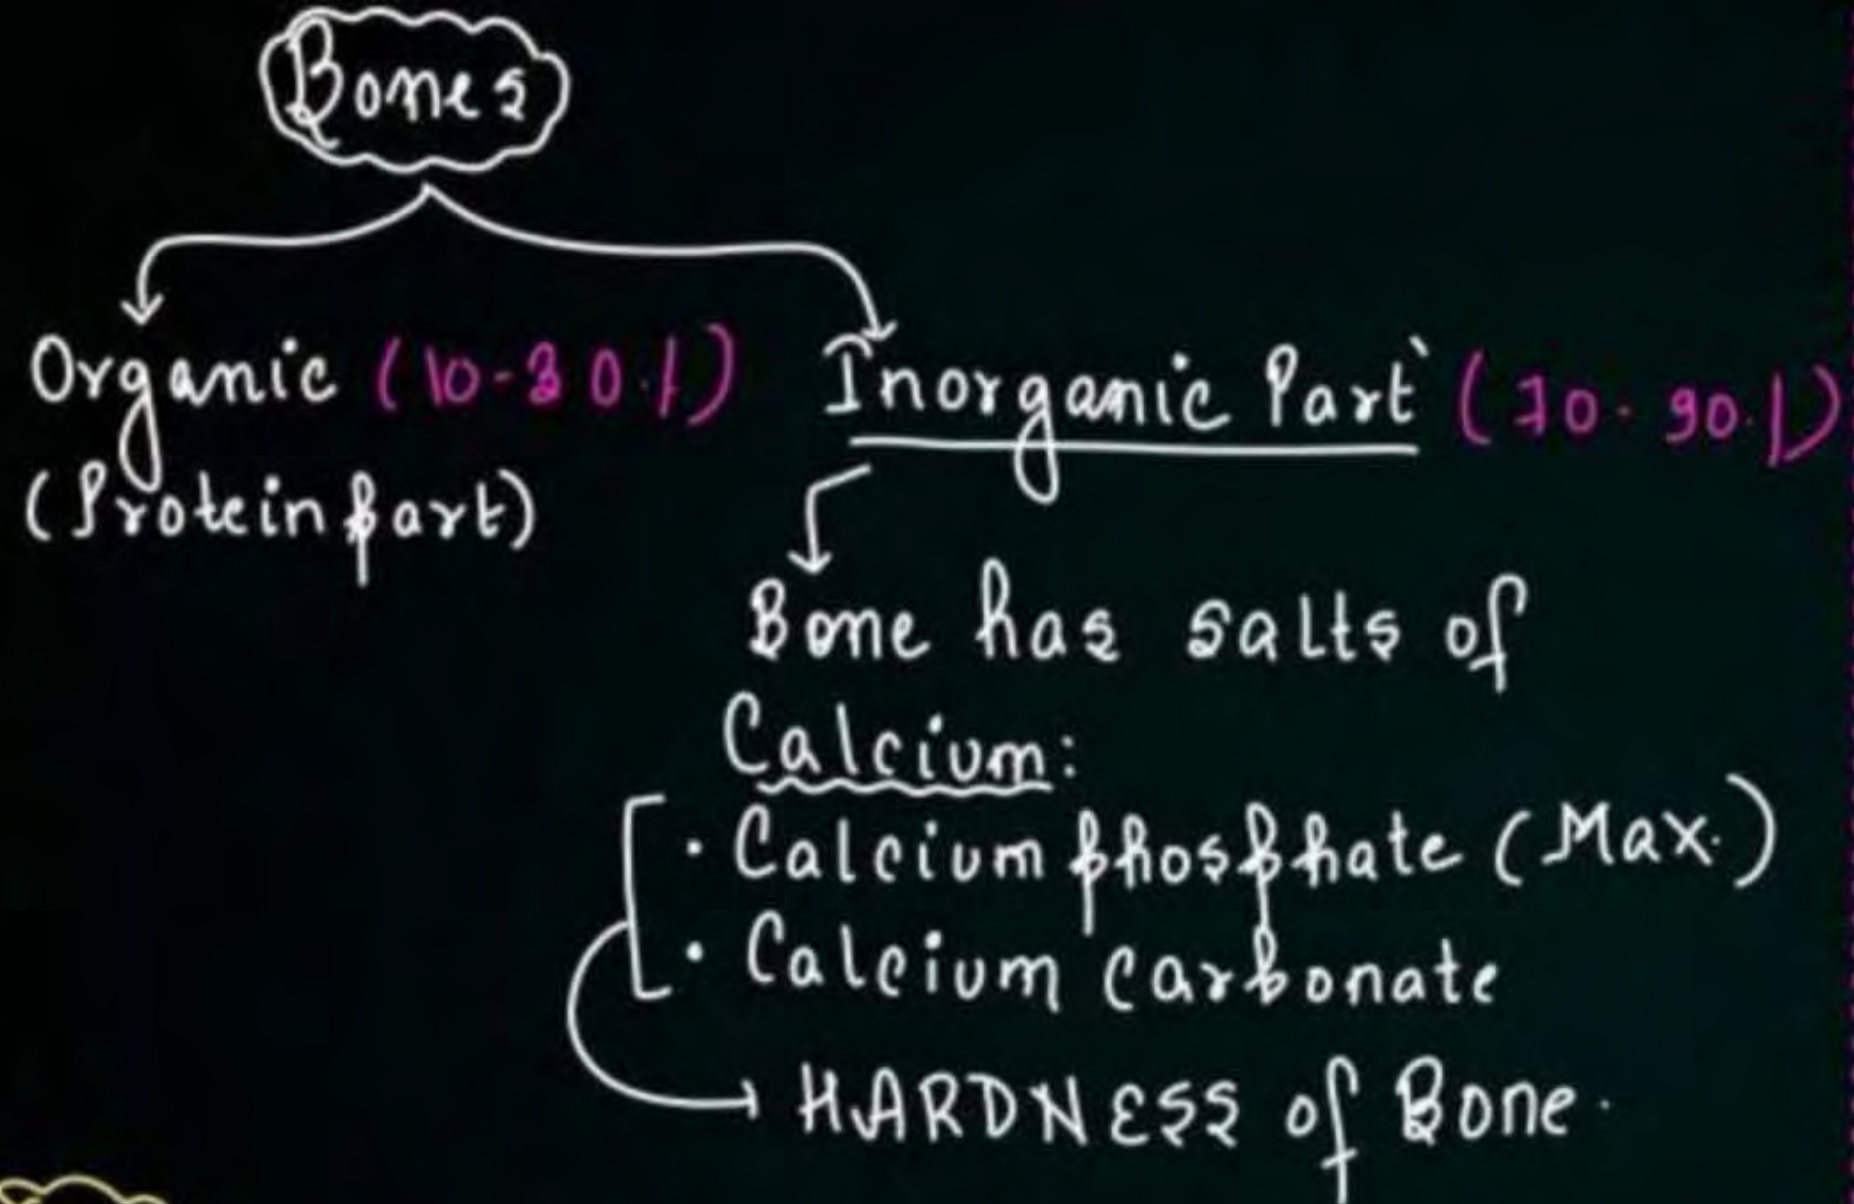 Bones
Organic (10-30%) Inorganic Part (70-90%)
(Protein part)
Bone has salts of
Calcium:
· Calcium phosphate (Max.)
· Calcium carbonate
HARDNESS of Bone.